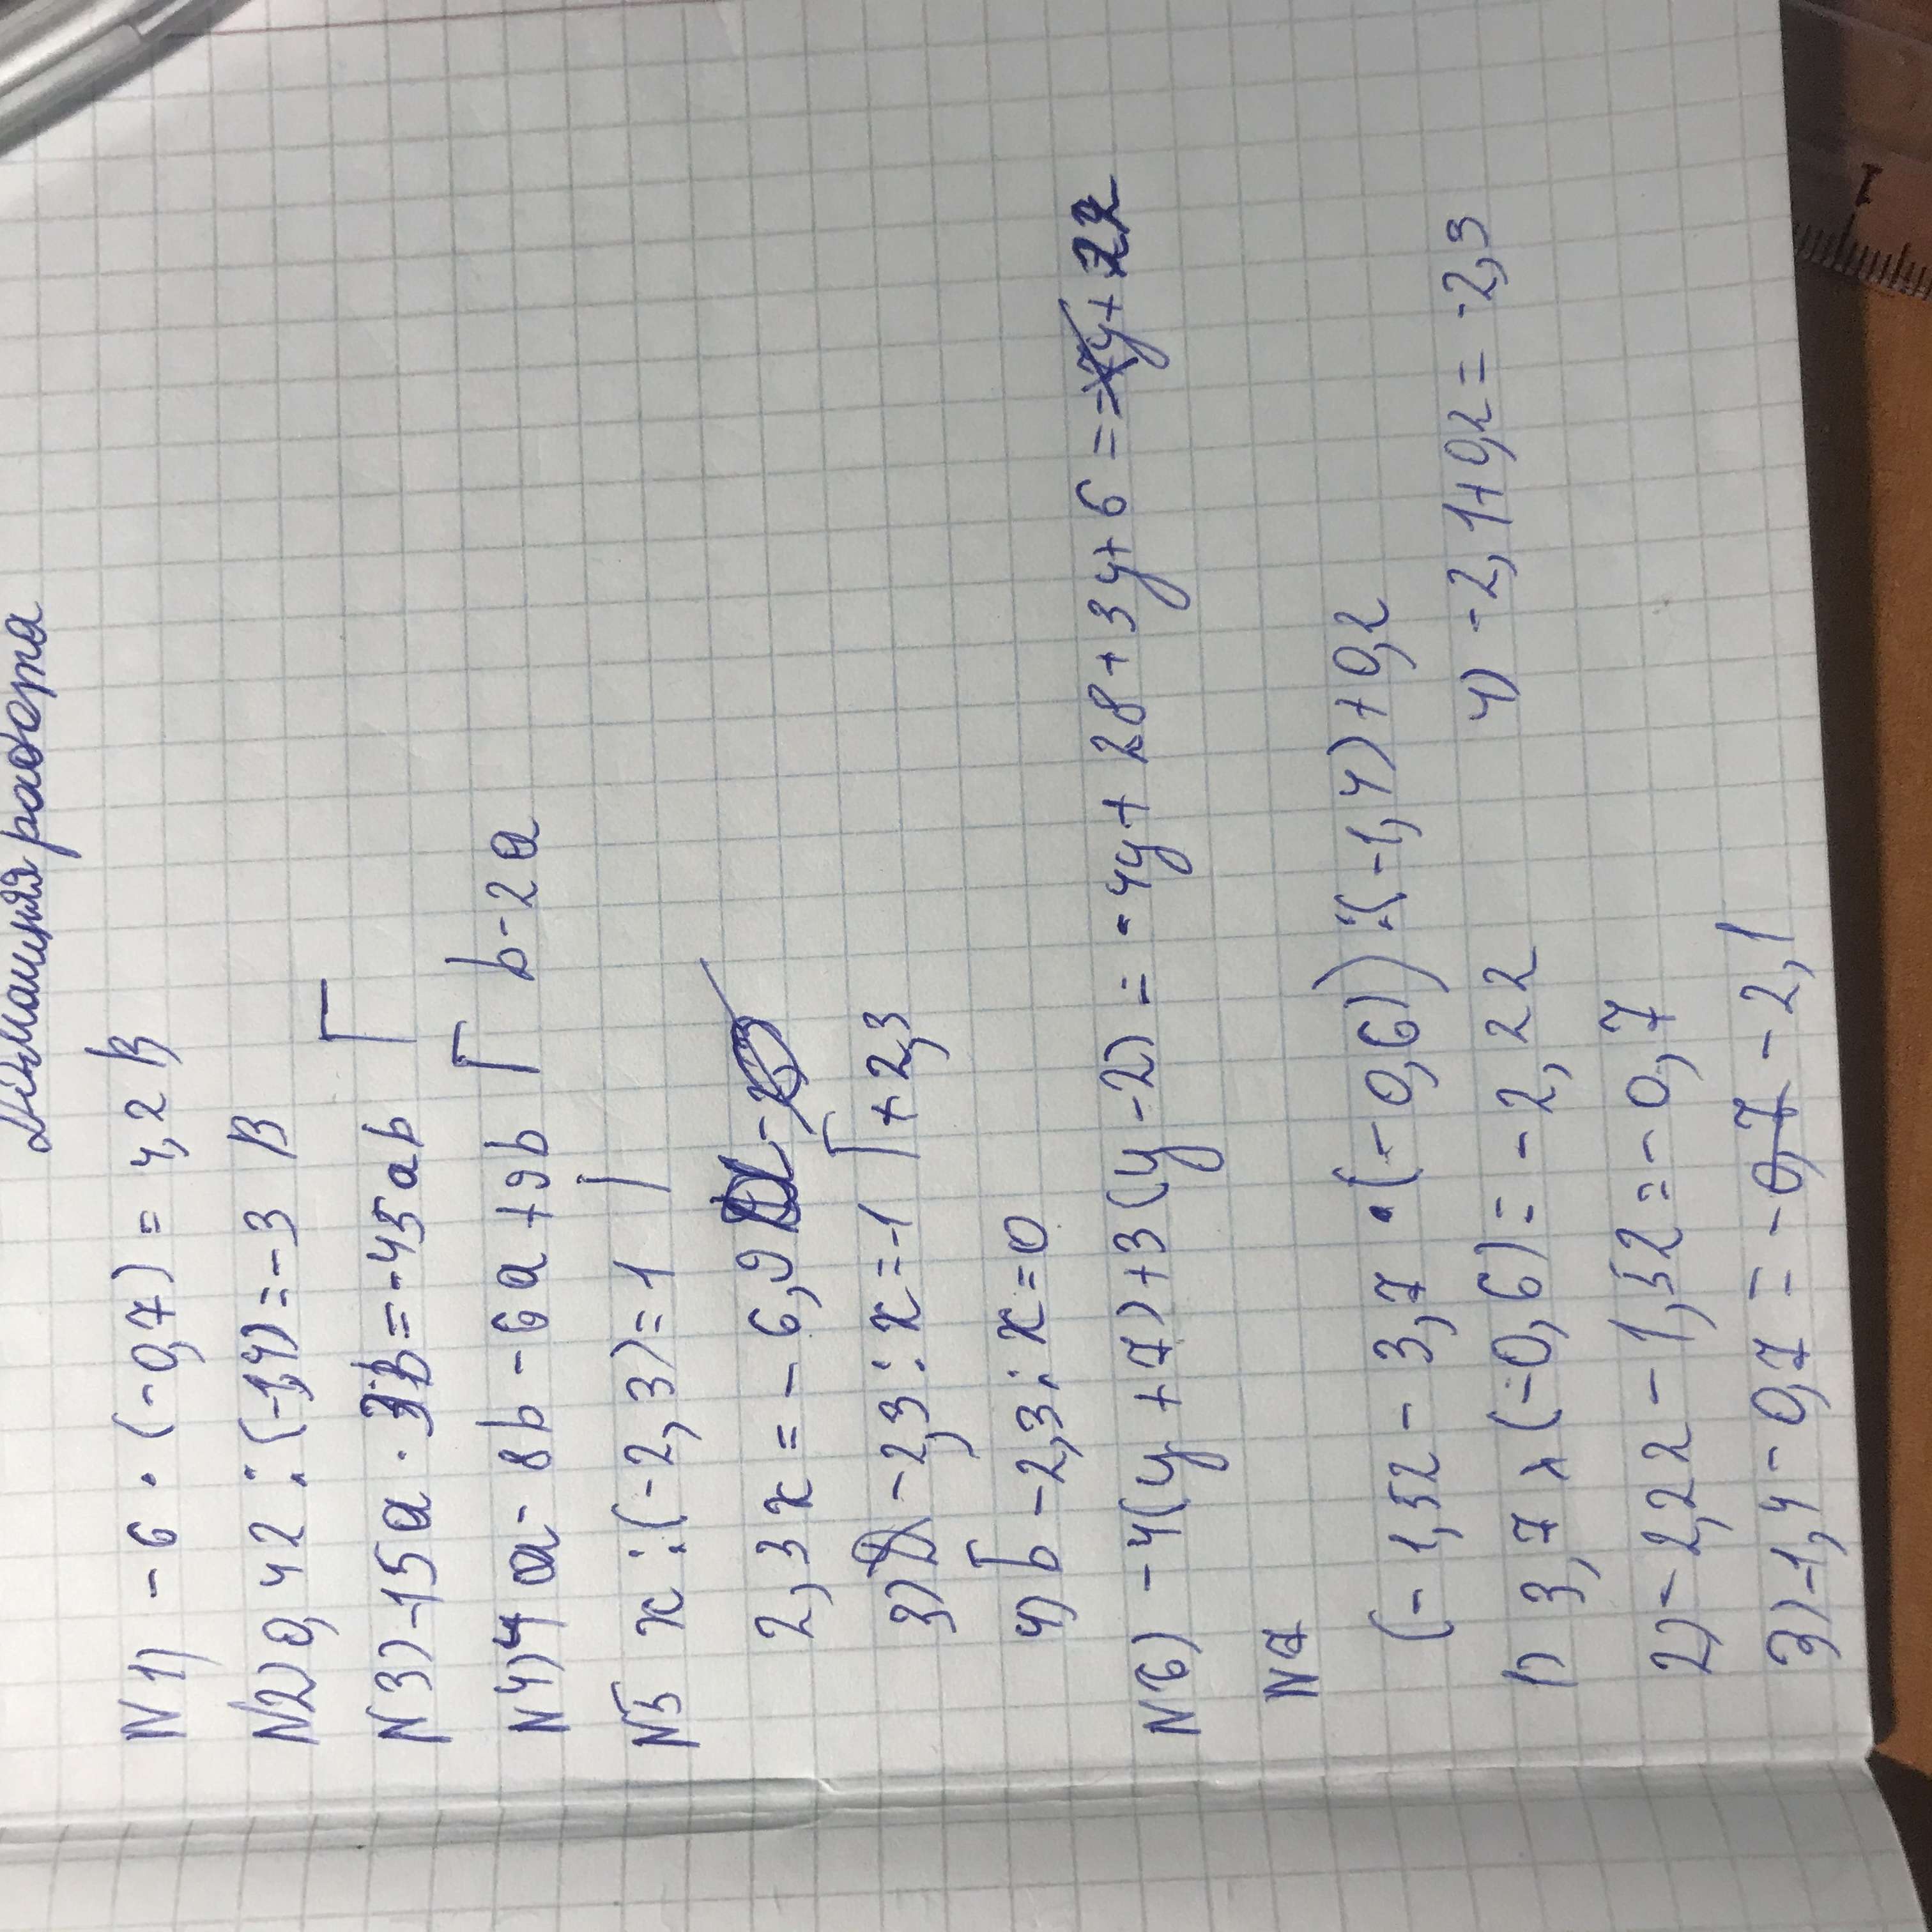 Домашняя работа
N1) -6 · (-0,7) = 4,2 В
N2) 0,42 : (-14) = -3 В
N3) -15a · 3b = -45ab Г
N4) 4a - 8b - 6a + 9b Г b-2a
N5 x : (-2,3) = 1
2,3x = -6,9
3) -2,3 : x = -1 Г + 2,3
4) б -2,3 : x = 0
N6) -4(y+7)+3(y-2) = -4y + 28 + 3y + 6 = y + 22
N7
(-1,52 - 3,7 · (-0,6)) : (-1,4) + 0,2
1) 3,7 x (-0,6) = -2,22
4) -2,1+0,2 = -2,3
2) -2,22 - 1,52 = -0,7
3) -1,4 - 0,7 = -0,7 -2,1
1